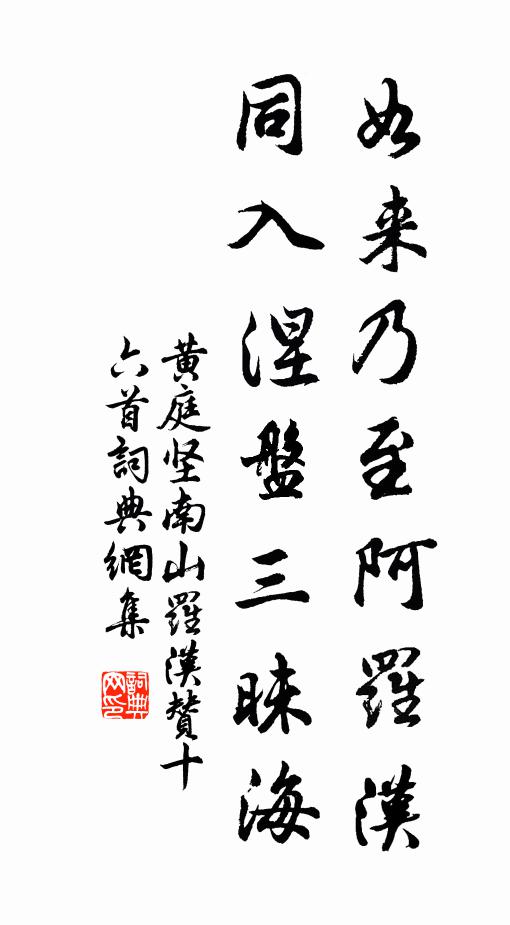 如来乃至阿羅漢
同入涅盤三昧海
黄庭坚南山羅漢贊十
六首詞典網集
詞典网印